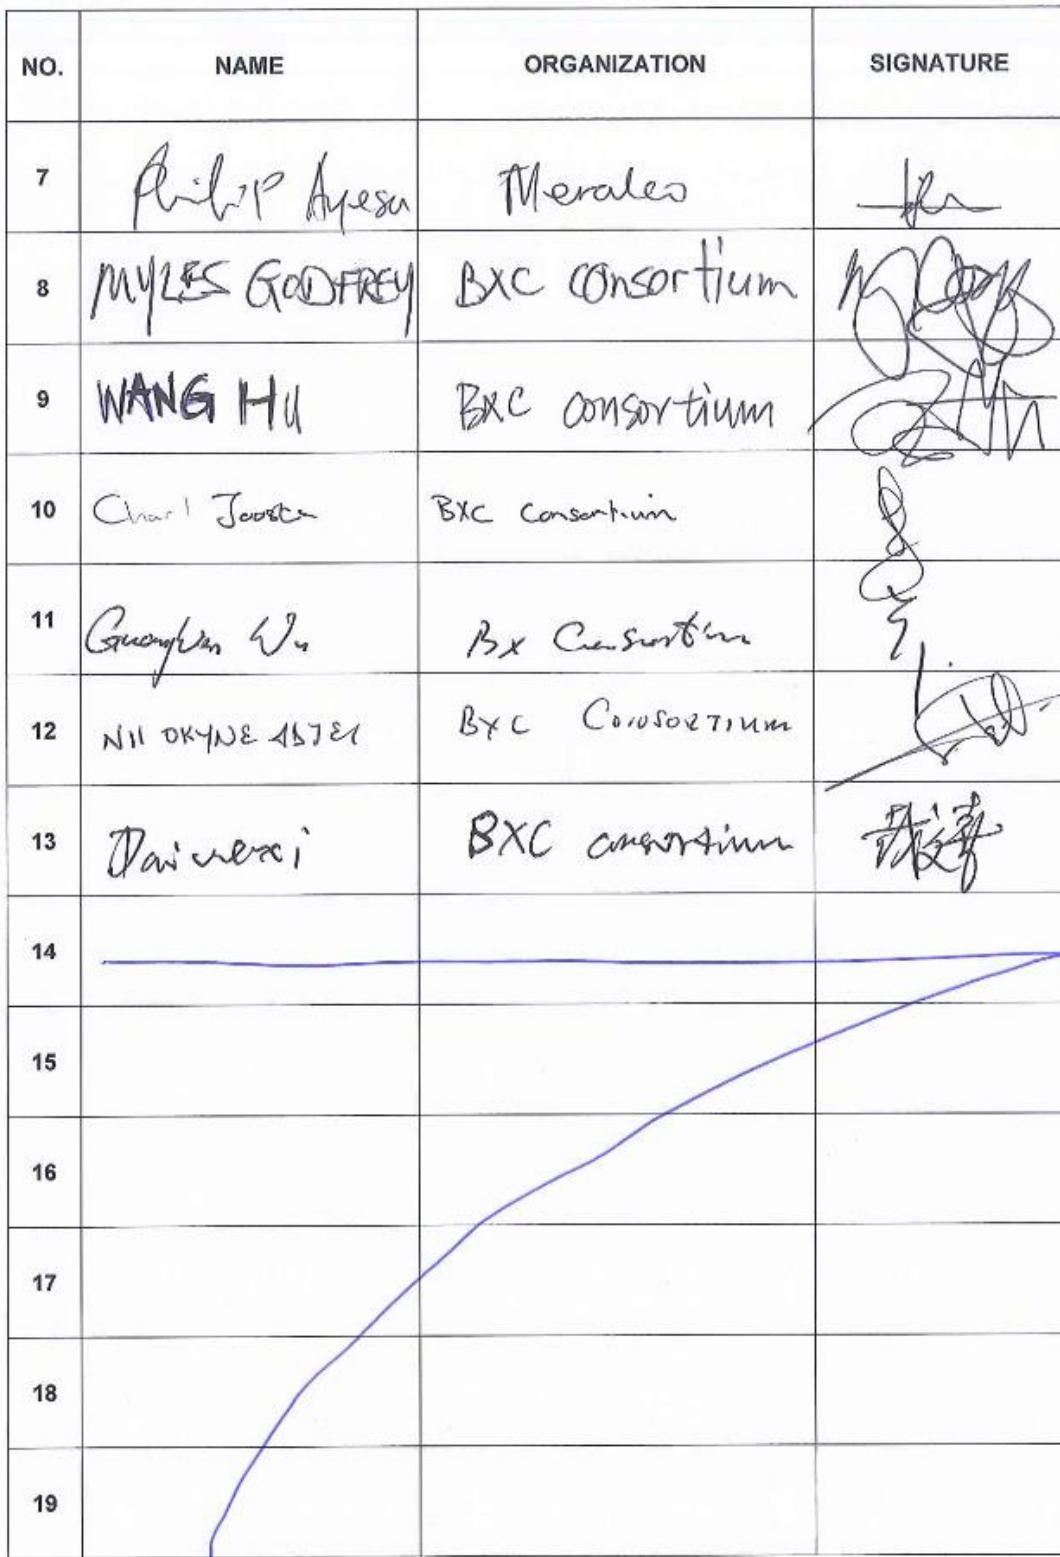 NO. NAME ORGANIZATION SIGNATURE
7 Philip Ayesu Meralco
8 MYLES GODFREY BXC consortium
9 WANG HU BXC consortium
10 Charl Jooste BXC Consortium
11 Wu Bx Consortium
12 NII OKYNE BXC Consortium
13 Dai wenxi BXC consortium
14
15
16
17
18
19